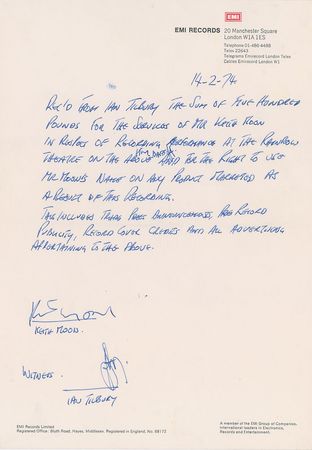 EMI
EMI RECORDS 20 Manchester Square
London W1A 1ES
Telephone 01-486 4488
Telex 22643
Telegrams Emirecord London Telex
Cables Emirecord London W1
14-2-74
REC'D FROM IAN TILBURY THE SUM OF FIVE HUNDRED
POUNDS FOR THE SERVICES OF MR KEITH MOON
IN RESPECT OF RECORDING PERFORMANCE AT THE RAINBOW
THEATRE ON THE ABOVE DATE AND FOR THE RIGHT TO USE
MR MOON'S NAME ON ANY PRODUCT MARKETED AS
A RESULT OF THIS RECORDING.
THIS INCLUDES TRADE PRESS ANNOUNCEMENTS AND RECORD
PUBLICITY, RECORD COVER CREDITS AND ALL ADVERTISING
APPERTAINING TO THE ABOVE.
KEITH MOON.
WITNESS.
IAN TILBURY
EMI Records Limited
Registered Office: Blyth Road, Hayes, Middlesex. Registered in England, No. 68172
A member of the EMI Group of Companies,
International leaders in Electronics,
Records and Entertainment.